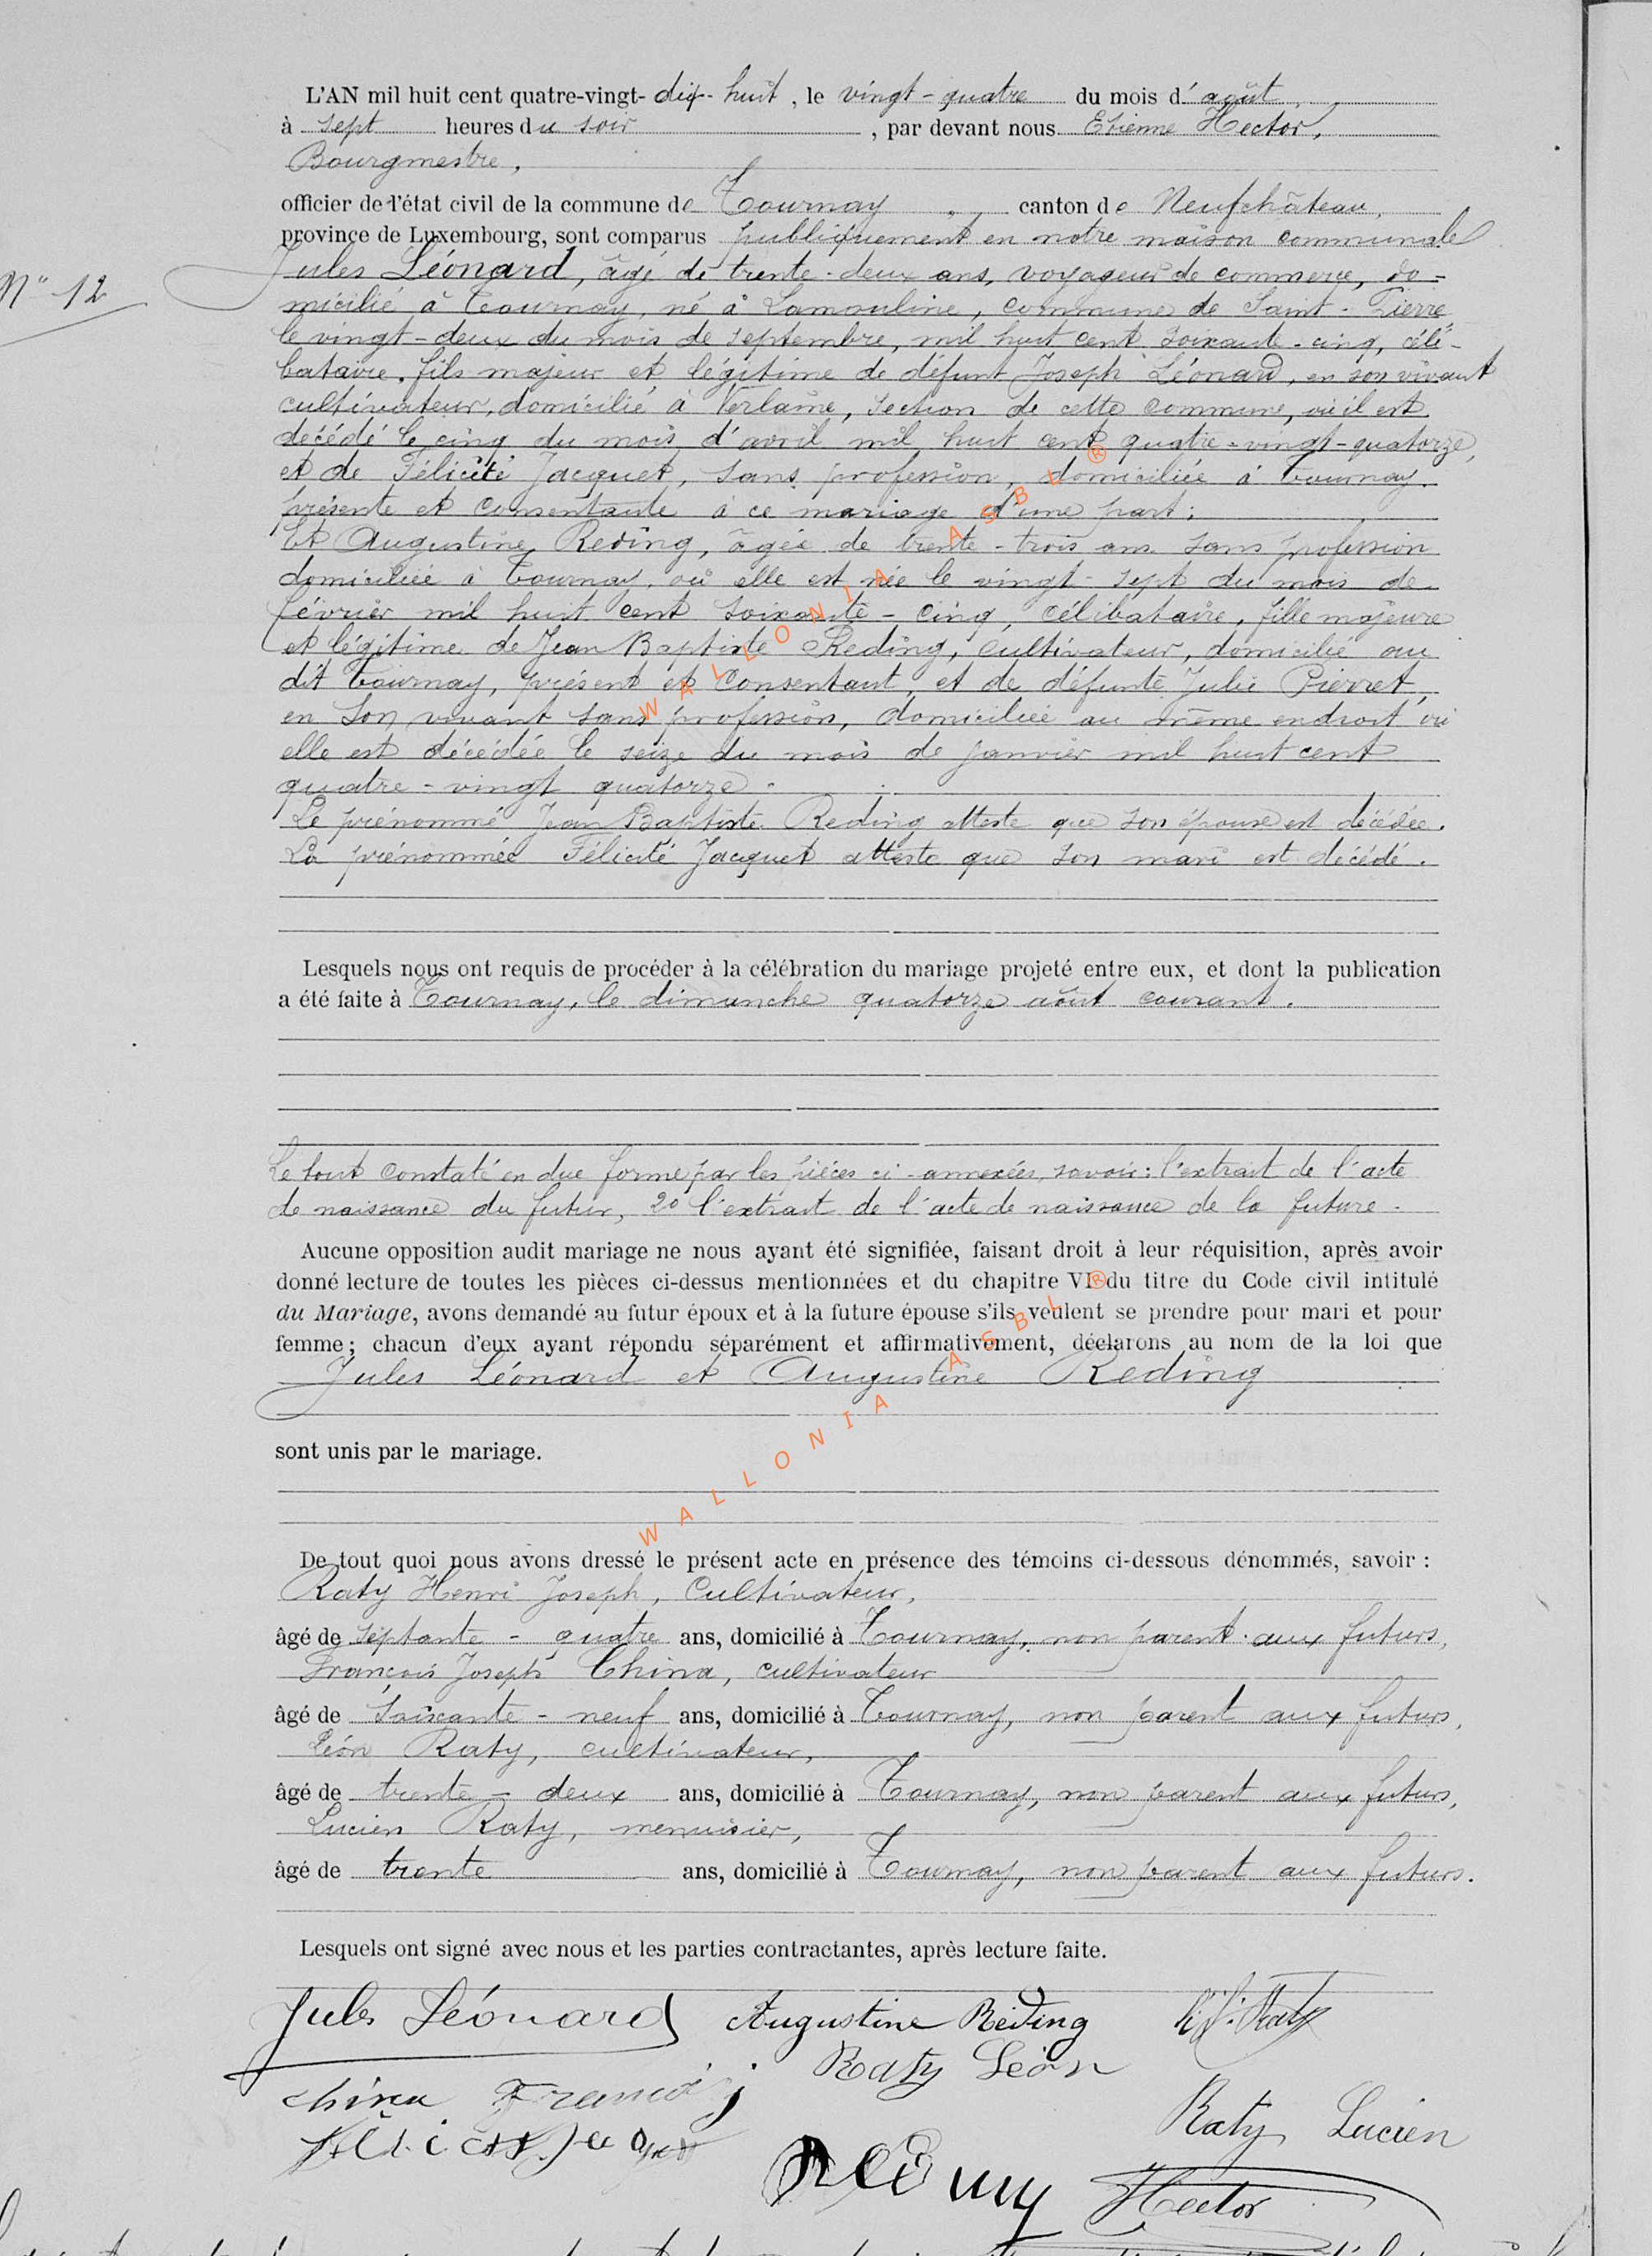 L'AN mil huit cent quatre-vingt- dix-huit, le vingt-quatre du mois d'août,
à sept heures du soir, par devant nous Etienne Hector,
Bourgmestre,
officier de l'état civil de la commune de Tournay, canton de Neufchâteau,
province de Luxembourg, sont comparus publiquement en notre maison communale
N° 12
Jules Léonard, âgé de trente-deux ans, voyageur de commerce, do=
micilié à Tournay, né à Lamouline, commune de Saint-Pierre
le vingt-deux du mois de septembre, mil huit cent soixante-cinq, céli-
bataire, fils majeur et légitime de défunt Joseph Léonard, en son vivant
cultivateur, domicilié à Verlaine, section de cette commune, où il est
décédé le cinq du mois d'avril mil huit cent quatre-vingt-quatorze,
et de Félicité Jacquet, sans profession, domiciliée à Tournay.
présente et consentante à ce mariage d'une part;
Et Augustine Reding, âgée de trente-trois ans sans profession
domiciliée à Tournay, où elle est née le vingt-sept du mois de
février mil huit cent soixante-cinq, célibataire, fille majeure
et légitime de Jean Baptiste Reding, cultivateur, domicilié au
dit Tournay, présent et consentant, et de défunte Julie Pierret,
en son vivant sans profession, domiciliée au même endroit où
elle est décédée le seize du mois de janvier mil huit cent
quatre-vingt quatorze.
Le prénommé Jean Baptiste Reding atteste que son épouse est décédée.
La prénommée Félicité Jacquet atteste que son mari est décédé.
Lesquels nous ont requis de procéder à la célébration du mariage projeté entre eux, et dont la publication
a été faite à Tournay, le dimanche quatorze août courant.
Le tout constaté en due forme par les pièces ci-annexées, savoir: l'extrait de l'acte
de naissance du futur, 2° l'extrait de l'acte de naissance de la future.
Aucune opposition audit mariage ne nous ayant été signifiée, faisant droit à leur réquisition, après avoir
donné lecture de toutes les pièces ci-dessus mentionnées et du chapitre VI du titre du Code civil intitulé
du Mariage, avons demandé au futur époux et à la future épouse s'ils veulent se prendre pour mari et pour
femme; chacun d'eux ayant répondu séparément et affirmativement, déclarons au nom de la loi que
Jules Léonard et Augustine Reding
sont unis par le mariage.
De tout quoi nous avons dressé le présent acte en présence des témoins ci-dessous dénommés, savoir :
Raty Henri Joseph, Cultivateur,
âgé de septante-quatre ans, domicilié à Tournay, non parent aux futurs,
François Joseph China, cultivateur
âgé de soixante-neuf ans, domicilié à Tournay, non parent aux futurs,
Léon Raty, cultivateur,
âgé de trente-deux ans, domicilié à Tournay, non parent aux futurs,
Lucien Raty, menuisier,
âgé de trente ans, domicilié à Tournay, non parent aux futurs.
Lesquels ont signé avec nous et les parties contractantes, après lecture faite.
Jules Léonard Augustine Reding h. j. Raty
China François j Raty Léon
Raty Lucien
Hector
WALLONIA ASBL ®
WALLONIA ASBL ®